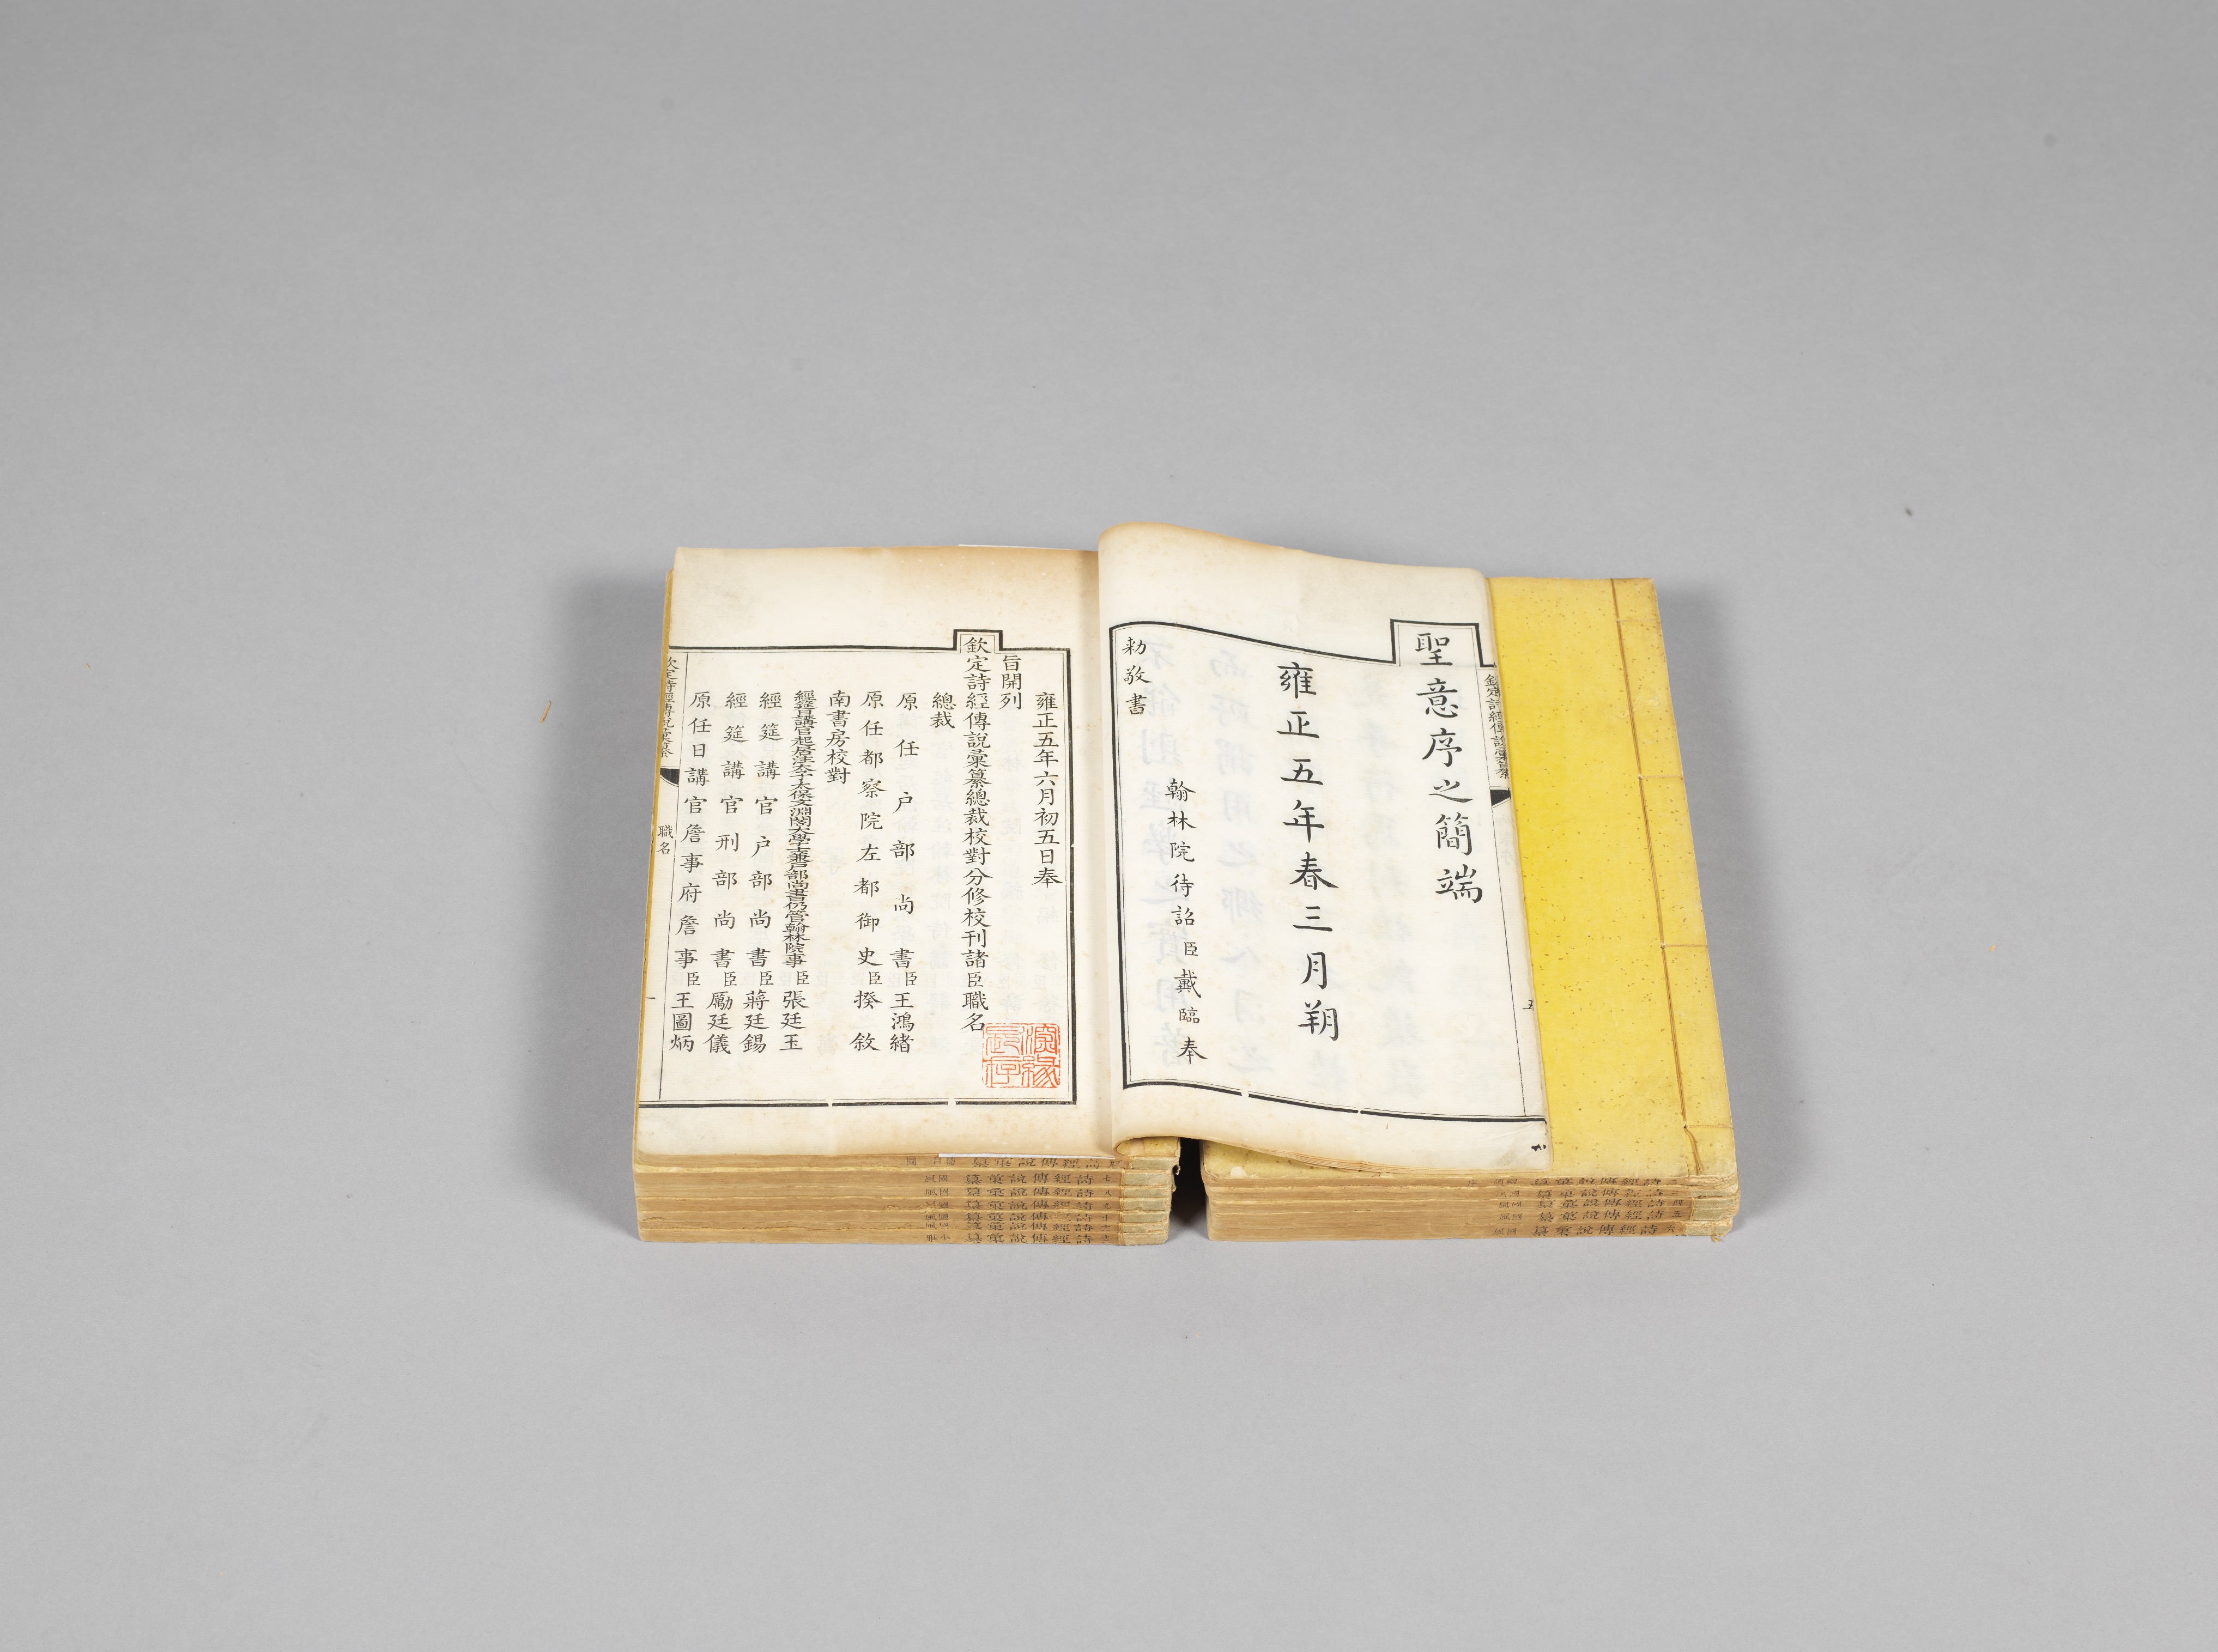 聖意序之簡端
雍正五年春三月朔
翰林院待詔臣戴臨奉
勅敬書
雍正五年六月初五日奉
旨開列
欽定詩經傳說彙纂總裁校對分修校刊諸臣職名
總裁
原任戶部尚書臣王鴻緒
原任都察院左都御史臣揆敘
南書房校對
經筵日講官起居注太子太保文淵閣大學士兼戶部尚書仍管翰林院事臣張廷玉
經筵講官戶部尚書臣蔣廷錫
經筵講官刑部尚書臣勵廷儀
原任日講官詹事府詹事臣王圖炳
欽定詩經傳說彙纂
職名
一
詩經傳說彙纂
詩經傳說彙纂
詩經傳說彙纂
詩經傳說彙纂
詩經傳說彙纂
小雅